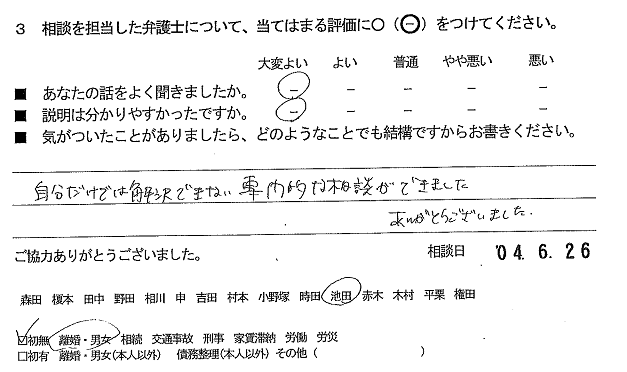 3 相談を担当した弁護士について、当てはまる評価に○（⊖）をつけてください。
大変よい よい 普通 やや悪い 悪い
■ あなたの話をよく聞きましたか。 － － － － －
■ 説明は分かりやすかったですか。 － － － － －
■ 気がついたことがありましたら、どのようなことでも結構ですからお書きください。
自分だけでは解決できない専門的な相談ができました
ありがとうございました.
ご協力ありがとうございました。 相談日 '04 6. 26
森田 榎本 田中 野田 相川 申 吉田 村本 小野塚 時田 池田 赤木 木村 平栗 権田
☑初無 離婚・男女 相続 交通事故 刑事 家賃滞納 労働 労災
□初有 離婚・男女(本人以外) 債務整理(本人以外) その他 ( )